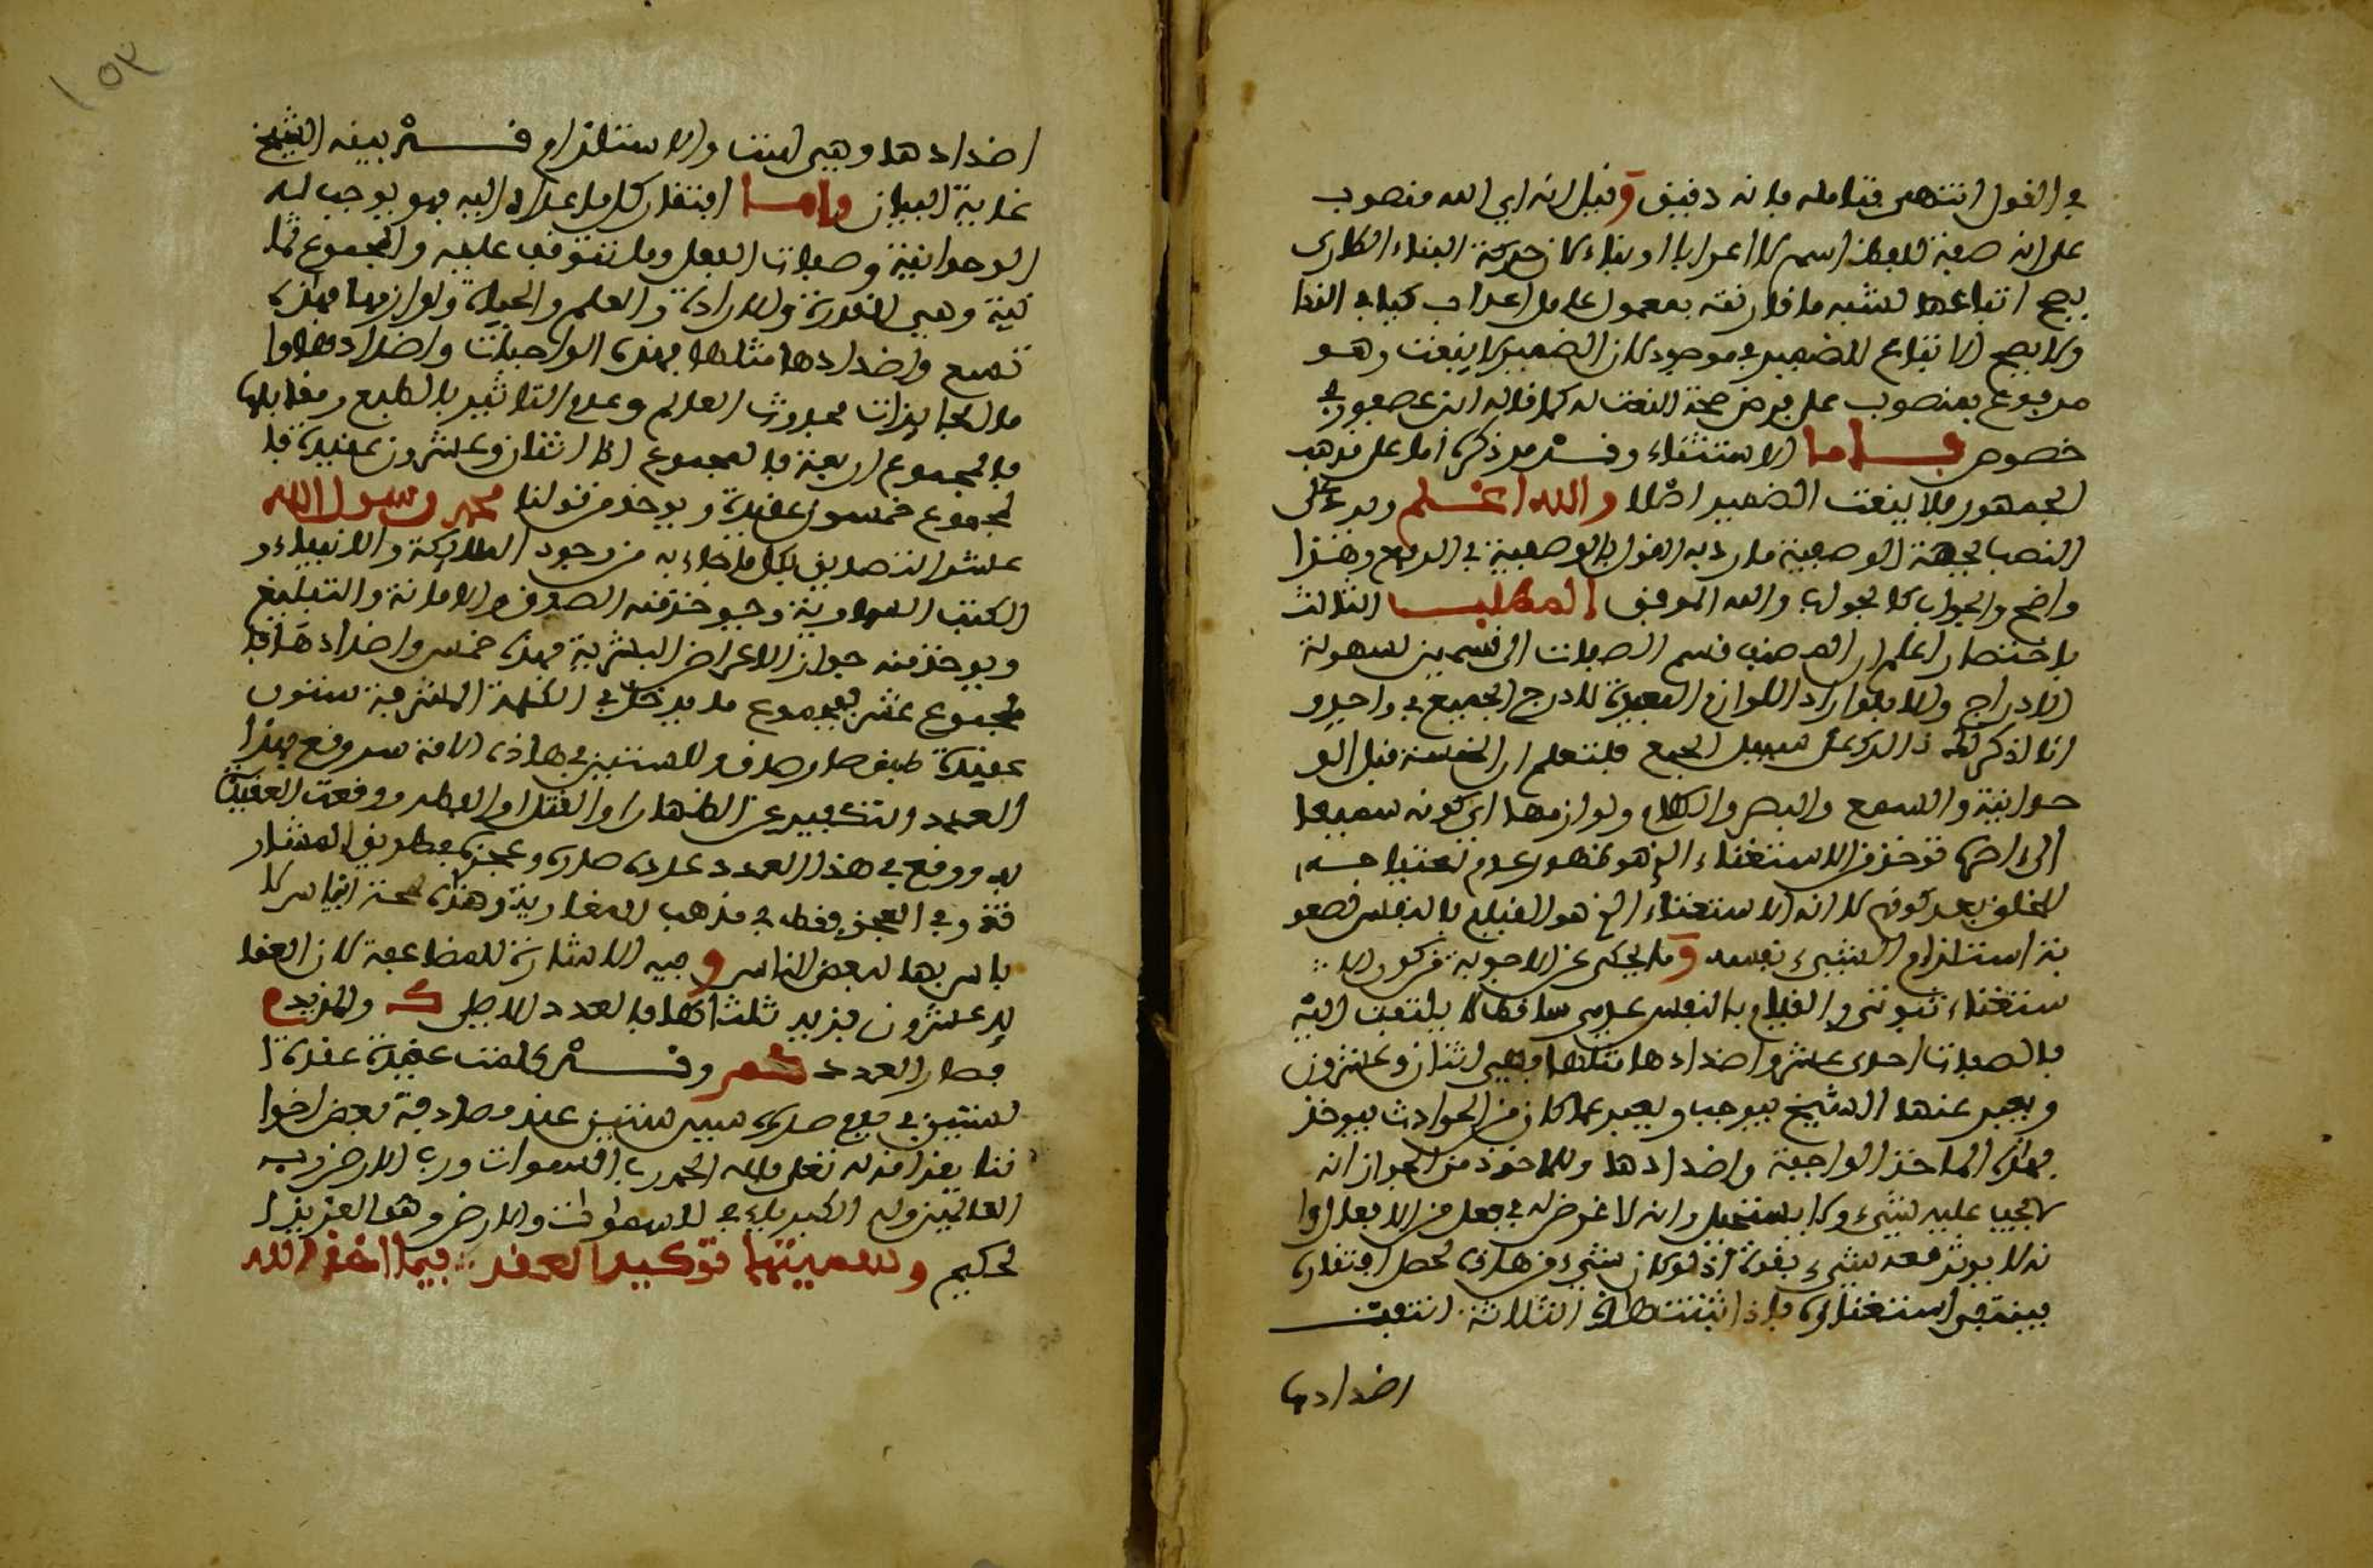 في القول انتهى فتامله فانه دقيق وقيل انه اي الله منصوب
على انه صفة للفظ اسم لا اعرابا او بناء لان حركة البناء الطارى
يصح اتباعها لشبه ما قارنته بمعمول عامل اعراب كياء في الندا
ولا يصح الاتباع للضمير في موجود لان الضمير لا ينعت وهو
مرفوع بمنصوب على فرض صحة النعت له كما قاله ابن عصفور في
خصوص باب ما الاستثناء وقد مر ذكره اما على مذهب
الجمهور فلا ينعت الضمير اصلا والله اعلم ويرد على
النصب لجهة الوصفية ما رد به القول بالوصفية في الرفع وهذا
واضح والجواب كالجواب والله الموفق المطلب الثالث
باختصار اعلم ان المصنف قسم الصفات الى قسمين لسهولة
الادراج والا فلو اراد اللوازم البعيدة لادرج الجميع في واحد و
انا اذكر لك ذالك على سبيل الجمع فلتعلم ان الخمسة قبل الو
حدانية والسمع والبصر والكلام ولوازمها اي كونه سميعا
الى اخرها توخذ من الاستغناء الذي هو ظهور عدم احتياجه
للخلق بعد كونهم لا انه الاستغناء الذي هو القيام بالنفس لصعو
بة استلزام الشيء نفسه وما يحكى عن الاجوبة من كون الا
ستغناء ثبوتي والقيام بالنفس عدمي ساقط لا يلتفت اليه
فالصفات احدى عشر واضدادها مثلها فهي اثنان وعشرون
ويعبر عنها الشيخ بيوجب ويعبر عما كان من الحوادث بيوخذ
فهذه الماخذ الواجبة واضدادها والماخوذ من الجواز انه
لا يجب عليه شيء ولا يستحيل وانه لا غرض له في فعل من الافعال وا
نه لا يوثر معه شيء بقوة اذ لو كان شيء من هاذه لحصل افتقاره
فينتفي استغناؤه فاذا ثبتت هاذه الثلاثة انتفت
اضدادها
١٥٣
اضدادها وهي الست والاستلزام قد بينه الشيخ
غاية البيان واما افتقار كل ما عداه اليه فهو يوجب له
الوحدانية وصفات الفعل وما تتوقف عليه والمجموع ثما
نية وهي القدرة والارادة والعلم والحياة ولوازمها فهاذه
تسع واضدادها مثلها فهذه الواجبات واضدادها وا
ما الجايزات فحدوث العالم وعدم التاثير بالطبع ومقابلها
فالمجموع اربعة فالمجموع اذا اثنان وعشرون عقيدة فا
لمجموع خمسون عقيدة ويوخذ من قولنا محمد رسول الله
عشر التصديق بكل ما جاء به من وجود الملائكة والانبياء و
الكتب السماوية وجو خذ منه الصدق والامانة والتبليغ
ويوخذ منه جواز الاعراض البشرية فهذه خمس واضدادها فا
لمجموع عشر فمجموع ما يدخل في الكلمة المشرفة ستون
عقيدة طبق صار صادق والستين في هاذه الامة سر وقع بهذا
العدد والتكفير عن الظهار او القتل او الفطر ووقعت العقيدة
به ووقع في هذا العدد عادة صدره وعجزه بطريق المشار
قة وفي العجز فقط في مذهب المغاربة وهذه لمحة اقتباس لا
باس بها لبعض الناس وفيه الاشارة للمضاعفة لان العقا
يد عشرون فزيد ثلث اكلها فالعدد الاصلي ك والمزيد م
فصار العدد س وقد كملت عقيدة عقدة ا
لستين في بيع صدره سبين ستين عند مصادفة بعض اخوا
ننا بقدامه له تعلى فلله الحمد رب السموات ورب الارض رب
العالمين وله الكبرياء في السموات والارض وهو العزيز ا
لحكيم وسميتها توكيد العقد فيما اخذ الله